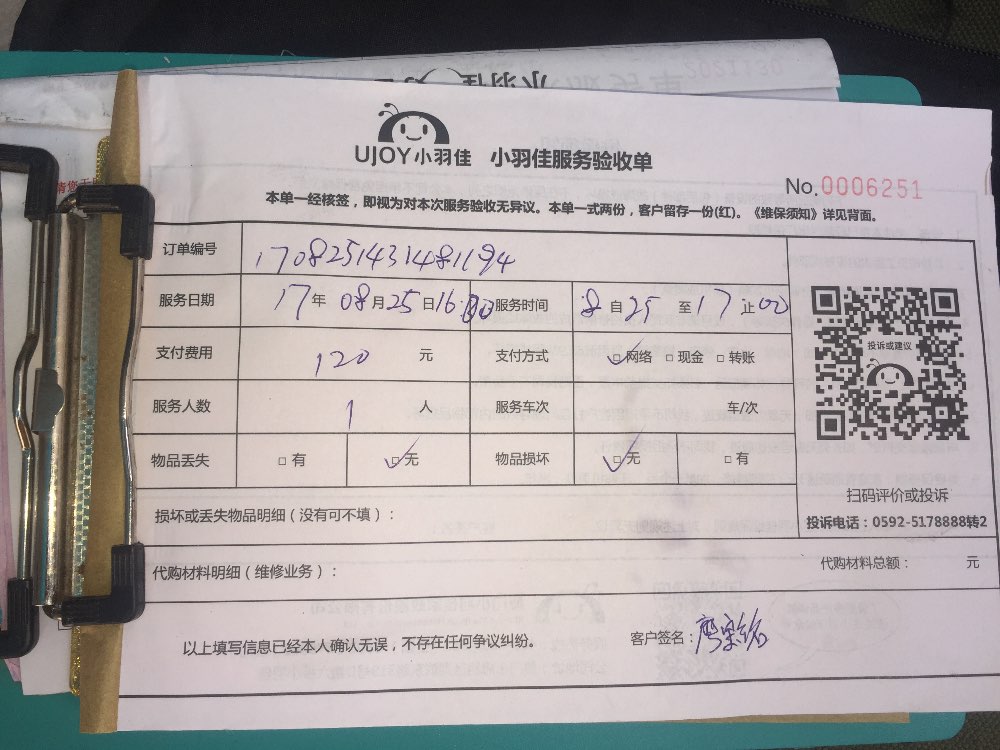 UJOY小羽佳 小羽佳服务验收单
No.0006251
本单一经核签，即视为对本次服务验收无异议。本单一式两份，客户留存一份(红)。《维保须知》详见背面。
订单编号 1708251431481194
服务日期 17年08月25日16:00 服务时间 8自25至17止00
支付费用 120 元 支付方式 □网络 □现金 □转账
投诉或建议
服务人数 1 人 服务车次 车/次
物品丢失 □有 □无 物品损坏 □无 □有
扫码评价或投诉
损坏或丢失物品明细（没有可不填）：
投诉电话：0592-5178888转2
代购材料明细（维修业务）：
代购材料总额： 元
以上填写信息已经本人确认无误，不存在任何争议纠纷。 客户签名：